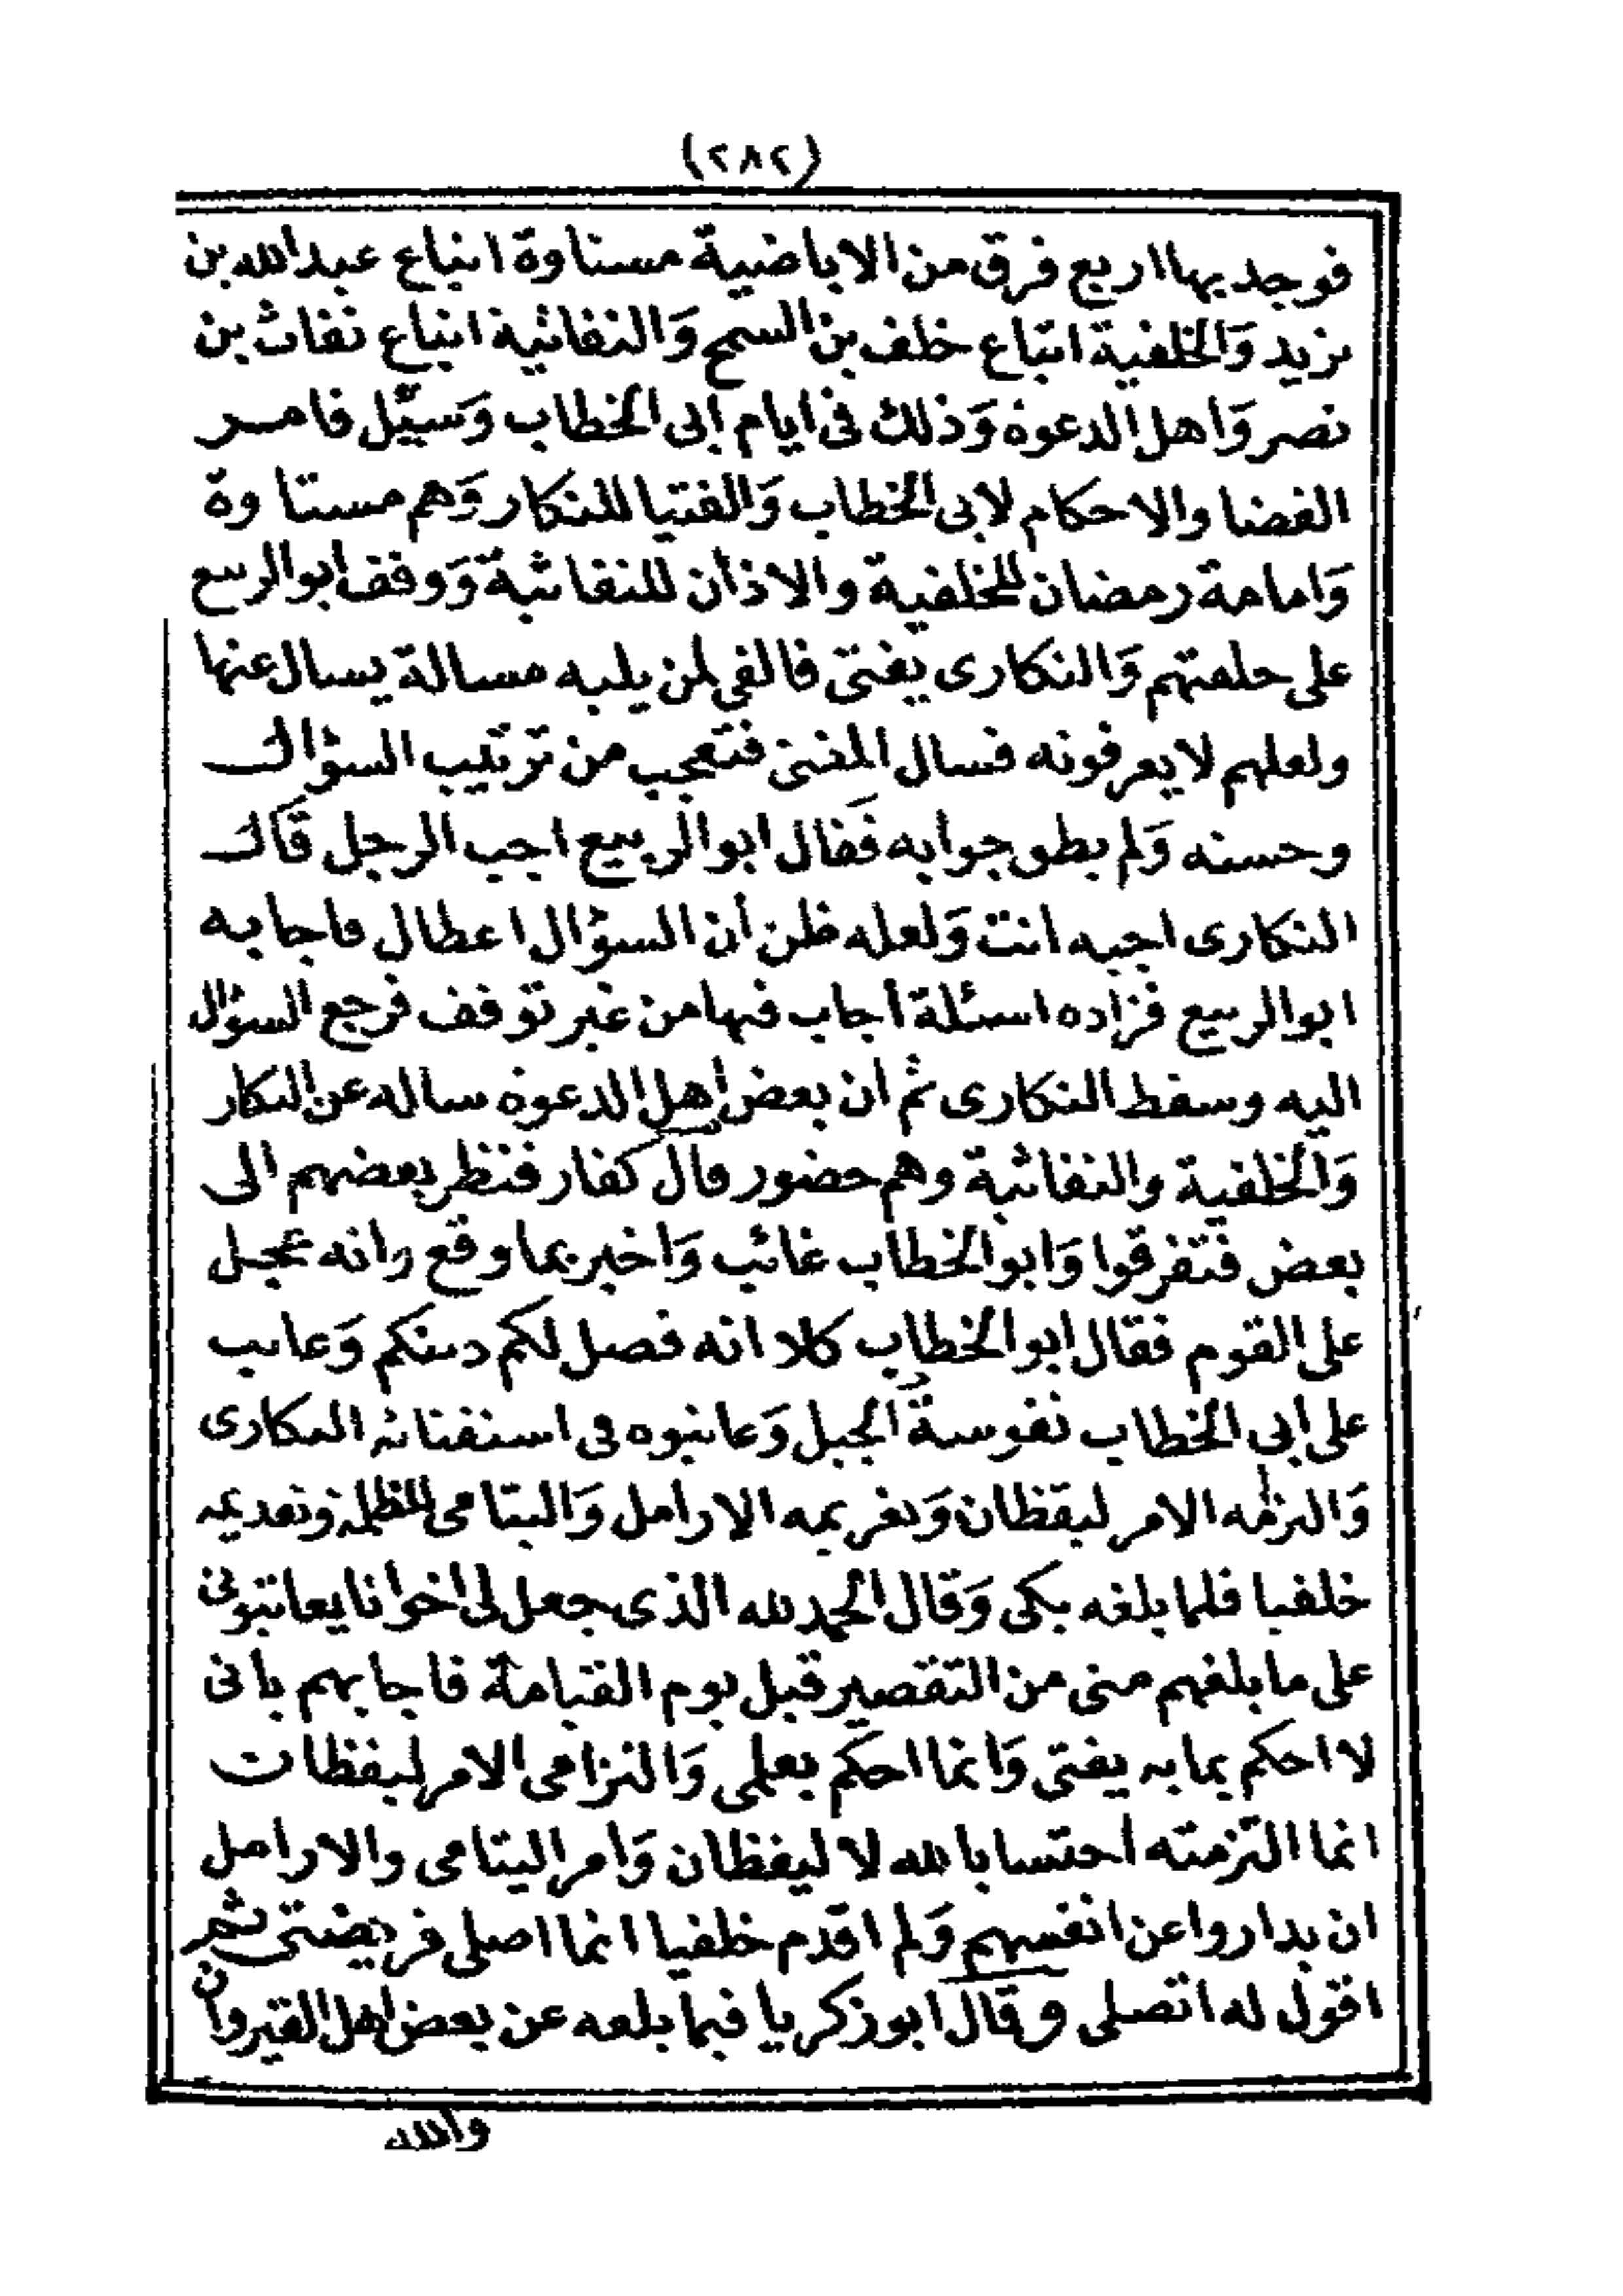 (٢٨٢)
فوجد بها اربع فرق من الاباضية مستاوة اتباع عبدالله بن
يزيد وَالخلفية اتباع خلف بن السمح وَالنفاثية اتباع نفاث بن
نصر وَاهل الدعوة وَذلك فى ايام ابى الخطاب وَسيل فامر
القضا والاحكام لابى الخطاب وَالفتيا للنكار وَهم مستاوة
وَامامة رمضان للخلفية والاذان للنفاثية وَوقف ابوالربيع
على حلقتهم وَالنكارى يفتى فالقى لمن يليه مسالة يسال عنها
ولعلهم لا يعرفونه فسال المفتى فتعجب من ترتيب السؤال
وحسنه وَلم يطق جوابه فَقال ابوالربيع اجب الرجل قَال
النكارى اجبه انت وَلعله ظن أن السؤال اعطال فاجابه
ابوالربيع فزاده اسئلة أجاب فيها من غير توقف فرجع السؤال
اليه وسقط النكارى ثم ان بعض اهل الدعوة ساله عن النكار
وَالخلفية والنفاثية وهم حضور قال كفار فنظر بعضهم الى
بعض فتفرقوا وَابوالخطاب غائب وَاخبر بما وقع وانه عجل
على القوم فقال ابوالخطاب كلا انه فصل لكم دينكم وَعاتب
على ابى الخطاب نفوسة الجبل وَعاتبوه فى استفتائه النكارى
وَالتزامه الامر ليقظان وَتغريمه الارامل وَاليتامى المظلمة وتقديمه
خلفيا فلما بلغه بكى وَقال الحمد لله الذى جعل لى اخوانا يعاتبونى
على ما بلغهم منى من التقصير قبل يوم القيامة فاجابهم بانى
لا احكم بما به يفتى وَانما احكم بعلمى وَالتزامى الامر ليقظان
انما التزمته احتسابا لله لا ليقظان وَامر اليتامى والارامل
ان يداروا عن انفسهم وَلم اقدم خلفيا انما اصلى فريضتى ثم
اقول له اتصلى وقال ابوزكريا فيما بلغه عن بعض اهل القيروان
والله